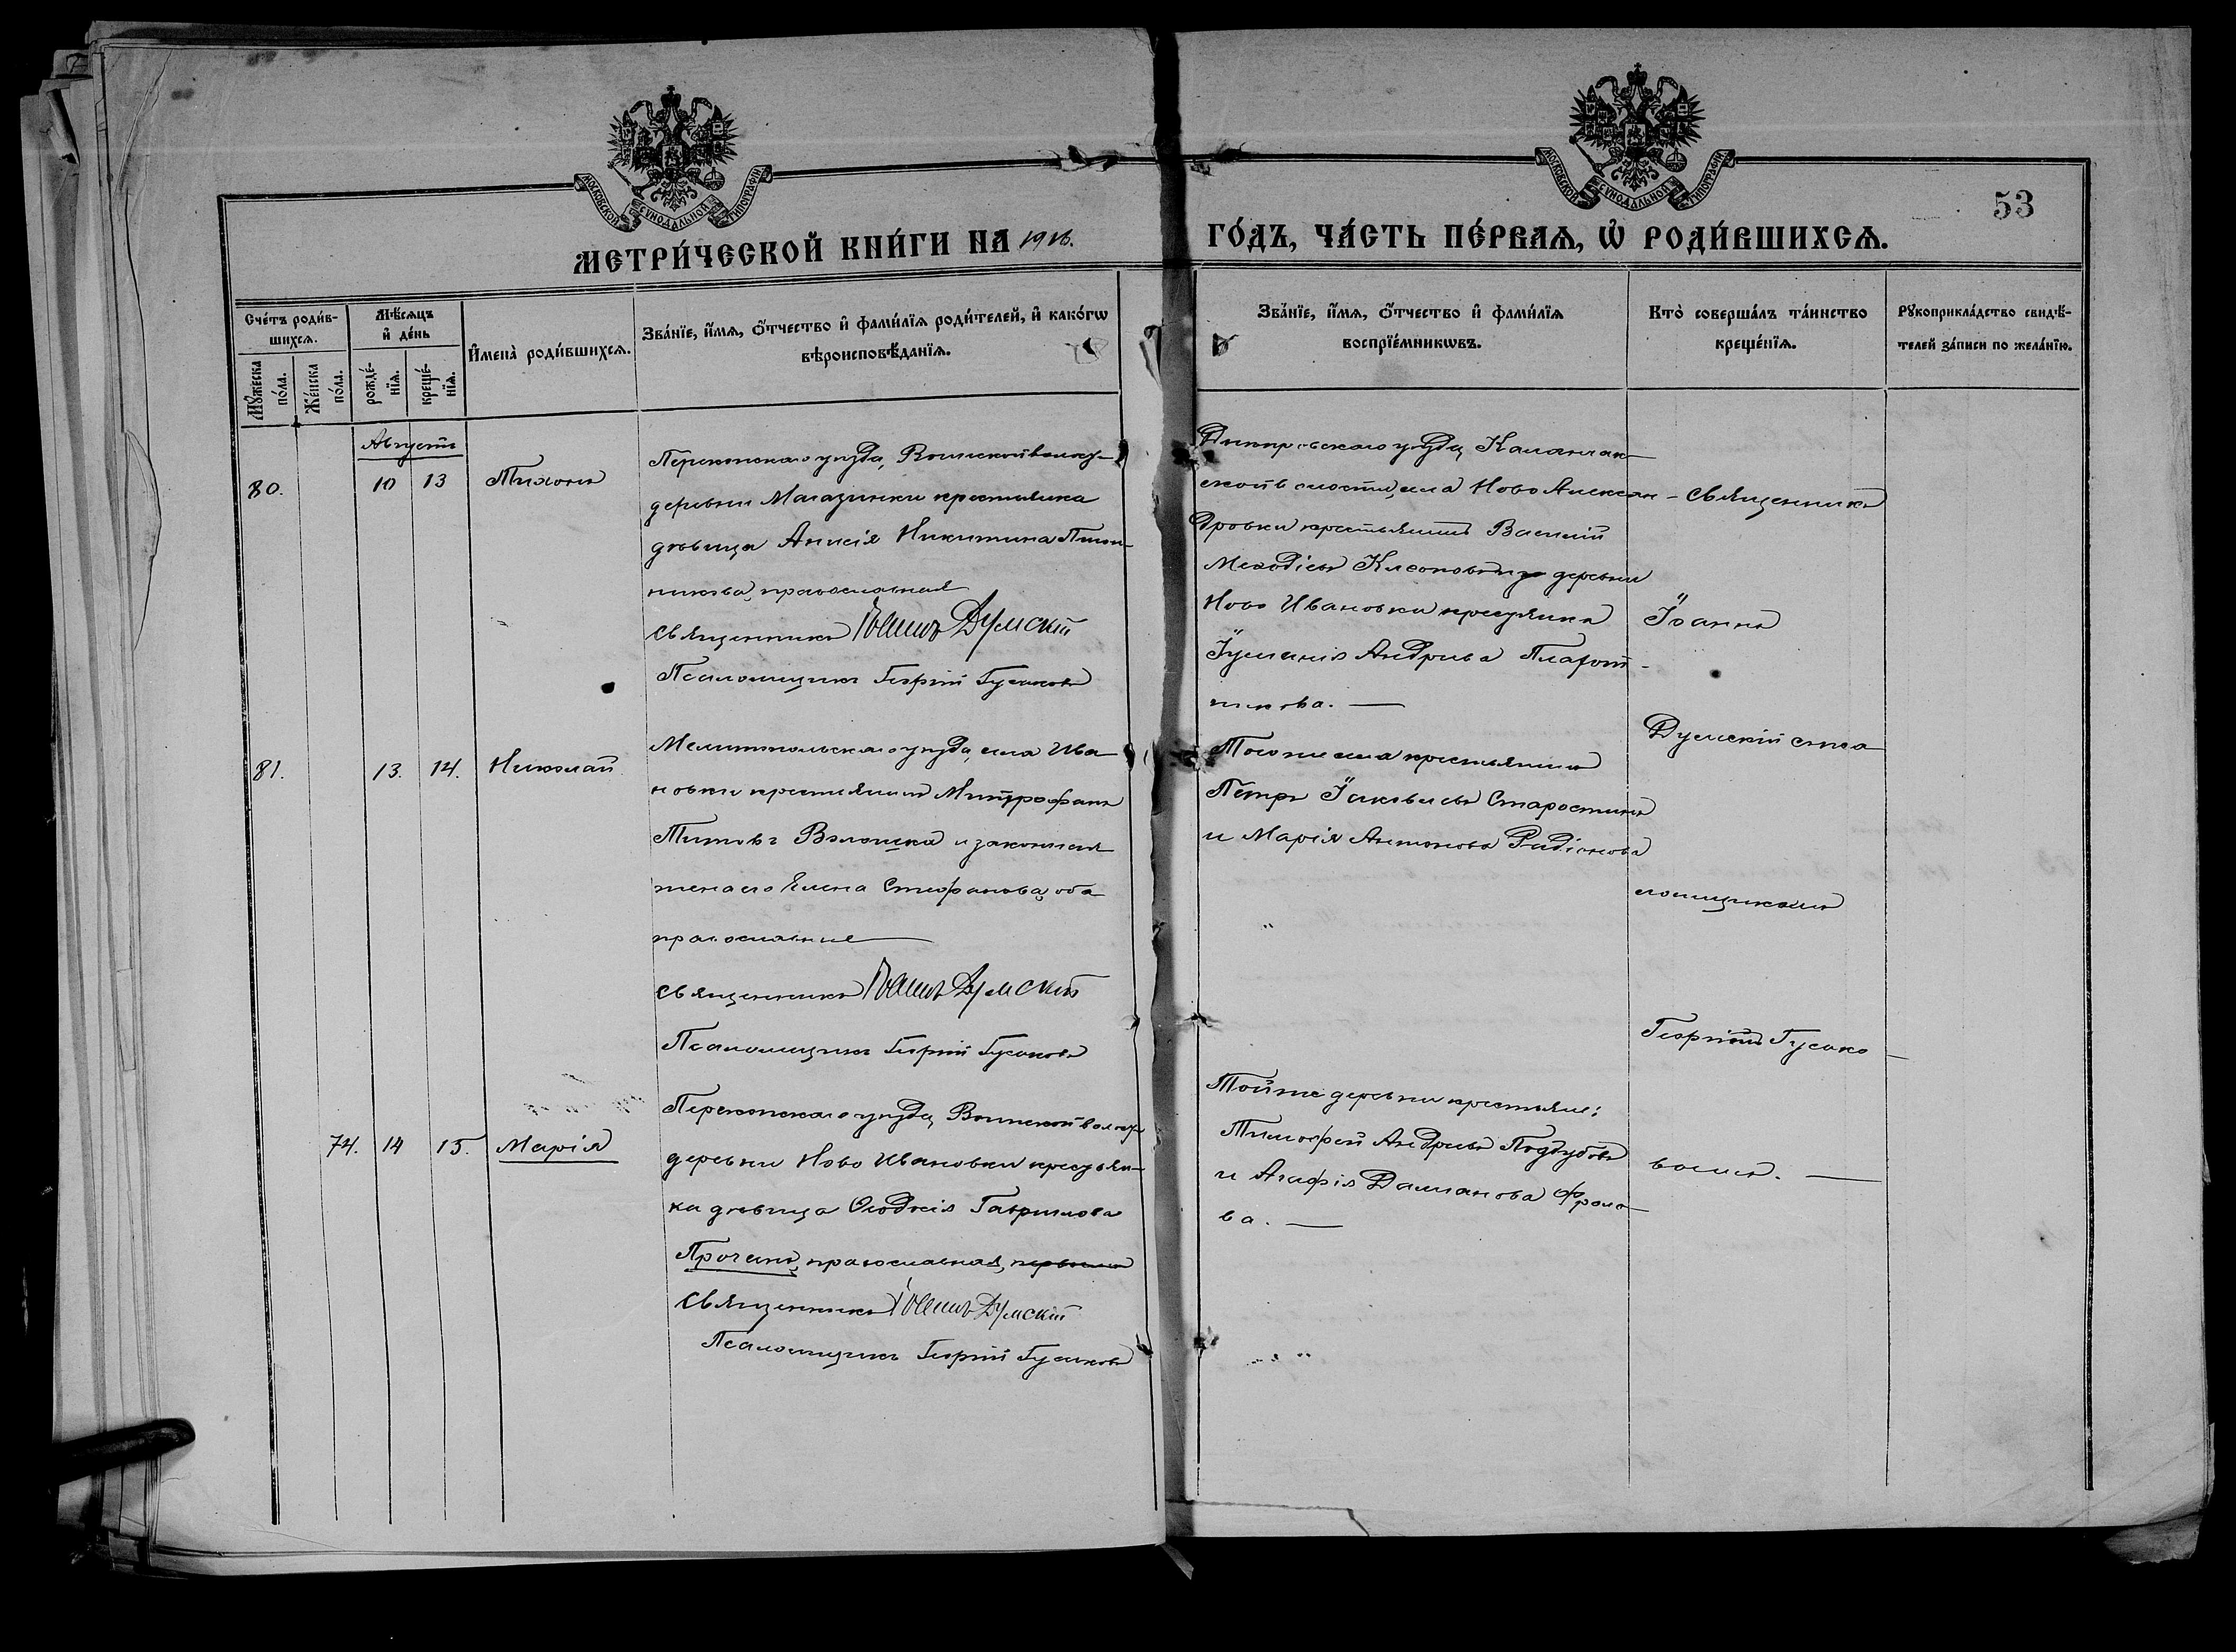 МОСКОВСКОЙ СѴНОДАЛЬНОЙ ТИПОГРАФІИ
МОСКОВСКОЙ СѴНОДАЛЬНОЙ ТИПОГРАФІИ
53
МЕТРИ́ЧЕСКОЙ КНИ́ГИ НА 1916.
ГО́ДЪ, ЧА́СТЬ ПЕ́РВАѦ, Ѡ҆ РОДИ́ВШИХСѦ.
Сче́тъ роди́в-
шихсѧ.
Мꙋ́жеска по́ла.
Же́нска по́ла.
Мѣ́сѧцъ
и҆ де́нь
рожде́-
нїѧ.
креще́-
нїѧ.
И҆мена̀ роди́вшихсѧ.
Зва́нїе, и҆́мѧ, ѻ҆́тчество и҆ фами́лїѧ роди́телей, и҆ како́гѡ
вѣроисповѣ́данїѧ.
Зва́нїе, и҆́мѧ, ѻ҆́тчество и҆ фами́лїѧ
воспрїе́мникѡвъ.
Кто̀ соверша́лъ та́инство
креще́нїѧ.
Рꙋкоприкла́дство свидѣ́-
телей за́писи по жела́нїю.
Августъ
80. 10 13 Тихонъ
Перекопскаго уѣзда, Воинской волости
деревни Магазинки крестьянка
дѣвица Анисія Никитина
никова, православная
Священникъ Іоаннъ Думскій
Псаломщикъ Георгій Гусаковъ
Днѣпровскаго уѣзда, Каланчак-
ской волости, села Ново Алексан-
дровки крестьянинъ Василій
Меѳодіевъ деревни
Ново Ивановки крестьянка
Іуліанія Андреева Плахот-
никова. —
81. 13. 14. Николай
Мелитопольскаго уѣзда, села Ива-
новки крестьянинъ Митрофанъ
Титовъ Волошка и законная
жена его Елена Стефанова, оба
православные
Священникъ Іоаннъ Думскій
Псаломщикъ Георгій Гусаковъ
Того же села крестьянинъ
Петръ Іаковлевъ Старостинъ
и Марія Антонова Радіонова
74. 14 15. Марія
Перекопскаго уѣзда, Воинской волости
деревни Ново Ивановки крестьян-
ка дѣвица Ѳеодосія Гаврилова
Прочанъ, православная,
Священникъ Іоаннъ Думскій
Псаломщикъ Георгій Гусаковъ
Той же деревни крестьяне:
Тимофей Андреевъ Поддубовъ
и Агафія Дамианова Фроло-
ва. —
Священникъ
Іоаннъ
Думскій съ пса
ломщикомъ
Георгіемъ Гусако-
вымъ. —